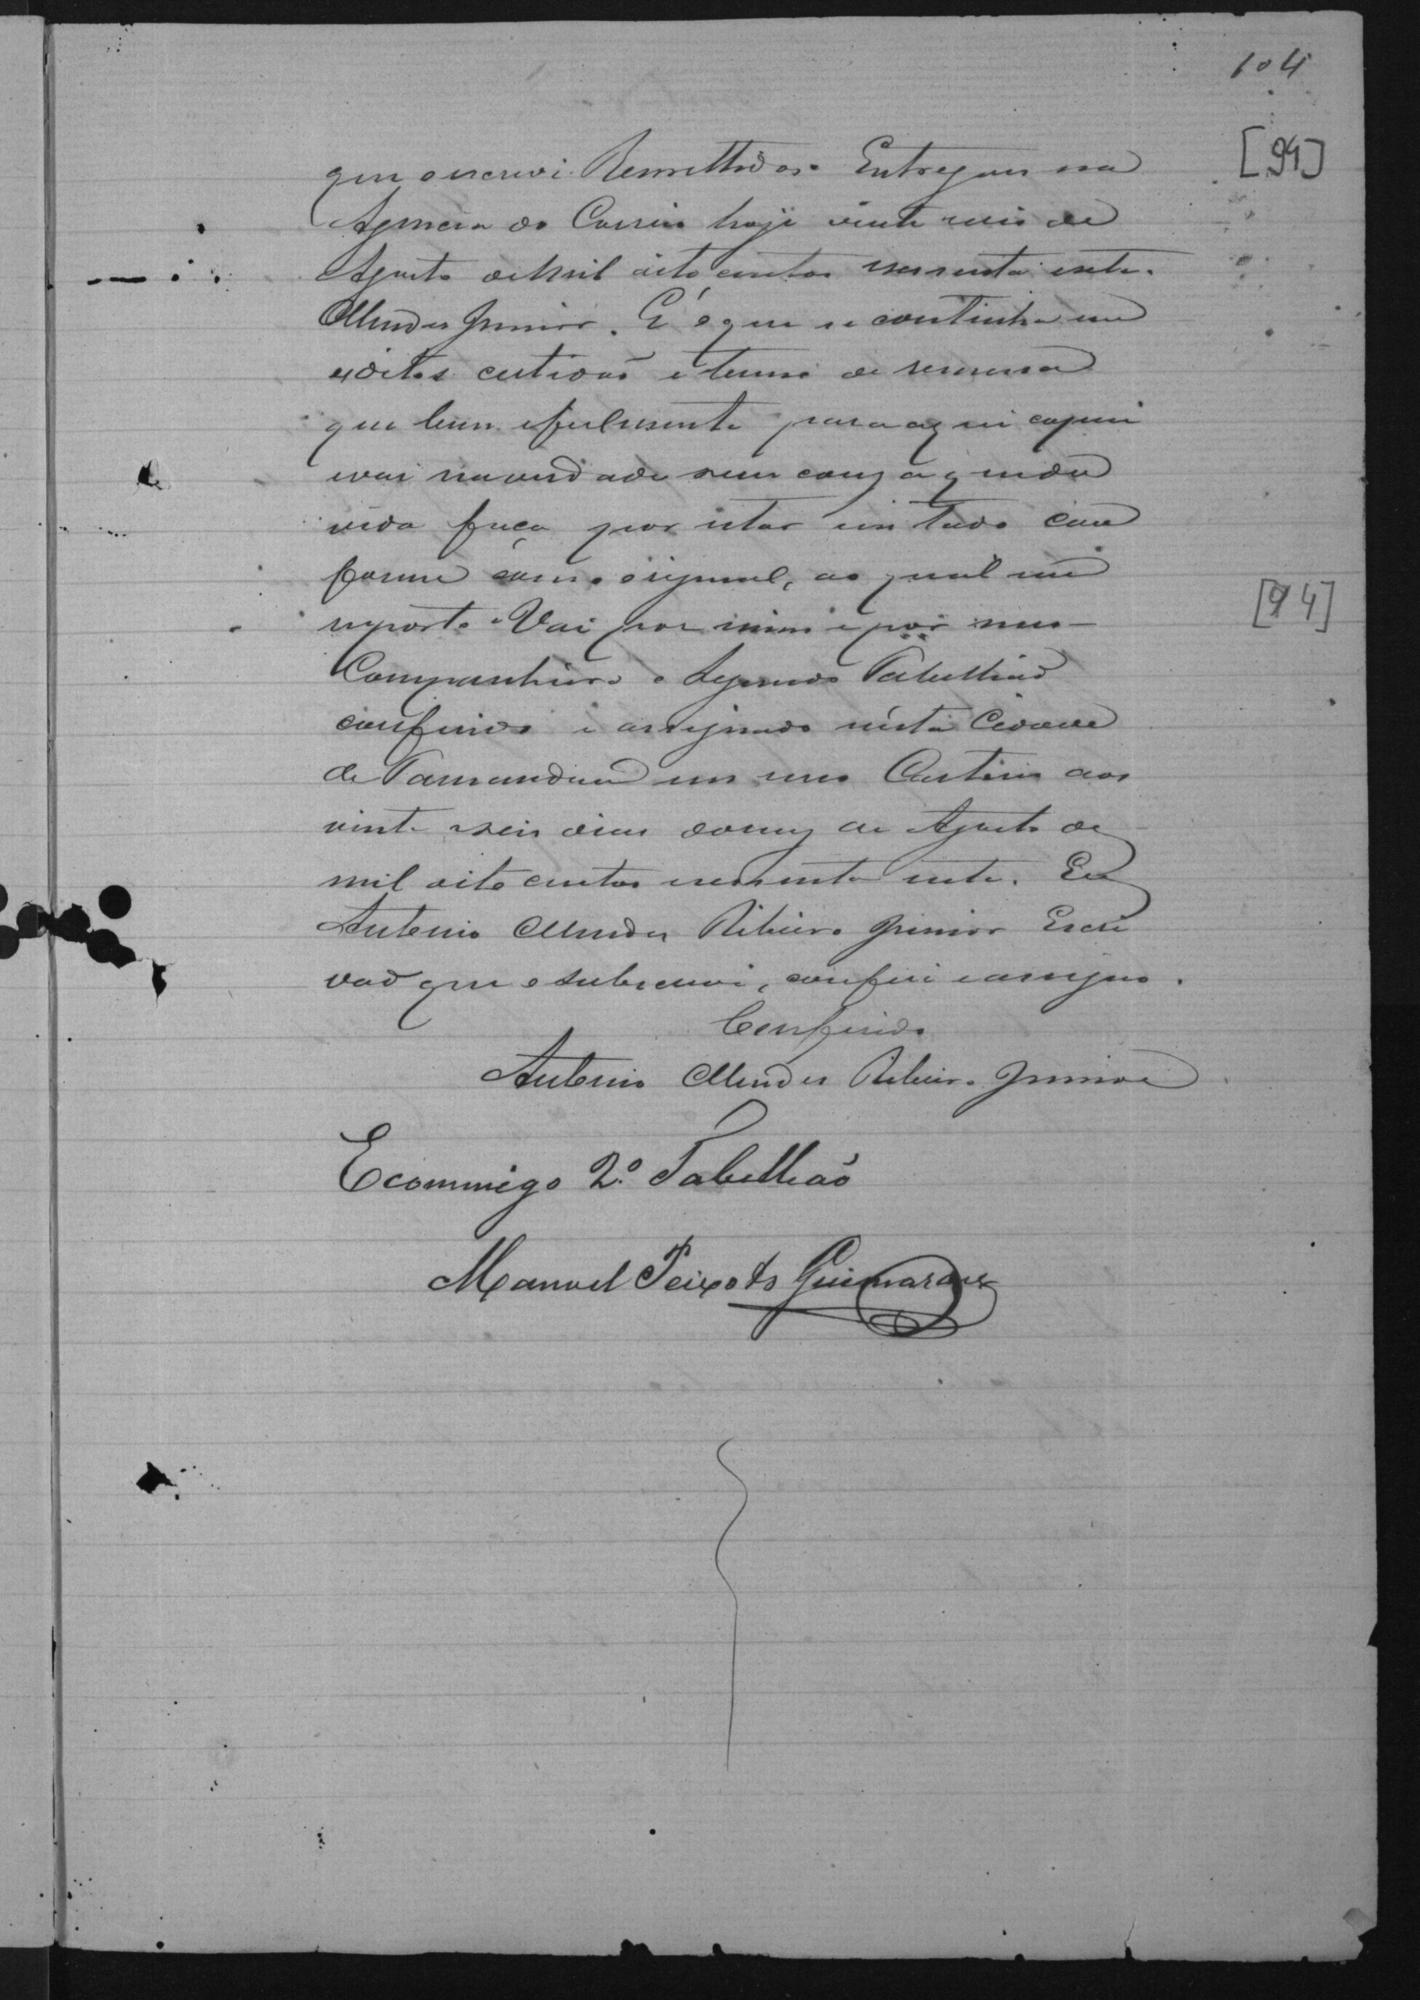 104
[94]
que escrevi. Remettidos. Entreguei na
Agencia do Correio hoje vinte seis de
Agosto de mil oito centos sessenta sete.
Mendes Junior. E é o que se continha em
editos certidão e termo de remessa
que bem e fielmente para aqui copiei
e vai na verdade sem couza que du
vida faça por estar em tudo con
forme com o original, ao qual me
reporto. Vai por mim e por meu
[94]
Companheiro o Segundo Tabellião
conferido e assignado nésta Cidade
de Tamanduá em meu Cartorio aos
vinte e seis dias do mez de Agosto de
mil oito centos sessenta sete. Eu
Antonio Mendes Ribeiro Junior Escri
vaõ que o subscrevi, conferi e assigno.
Conferido
Antonio Mendes Ribeiro Junior
E commigo 2º Tabelleaõ
Manoel Peixoto Guimarães